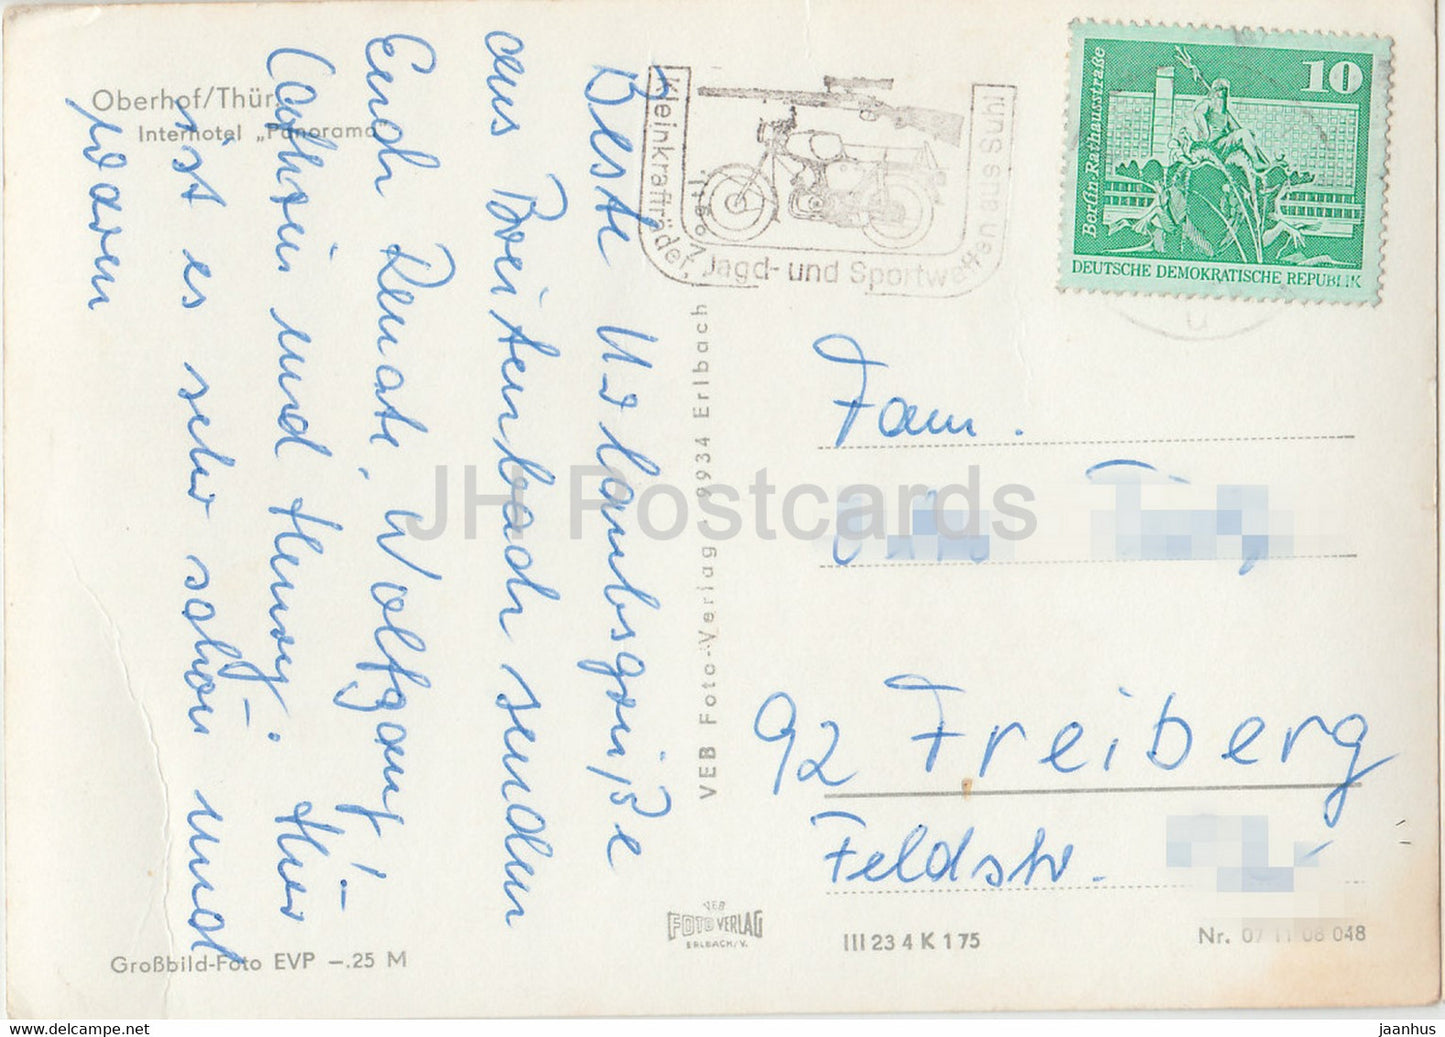 Oberhof/Thür.
Interhotel „Panorama"
Beste Urlaubsgrüße
aus Breitenbach senden
Euch Renate, Wolfgang,
Cathrin und Henry. Hier
ist es sehr schön und
warm
Großbild-Foto EVP –.25 M
VEB Foto-Verlag 9934 Erlbach Vogtl.
Kleinkrafträder, Jagd- und Sportwaffen aus Suhl
10
Berlin Rathausstraße
DEUTSCHE DEMOKRATISCHE REPUBLIK
Fam.
92 Freiberg
Feldstr.
VEB
FOTO VERLAG
ERLBACH/V.
III 23 4 K 175
Nr. 07 11 08 048
JH Postcards
hippostcard.com/store/jh-postcards
jaanhus